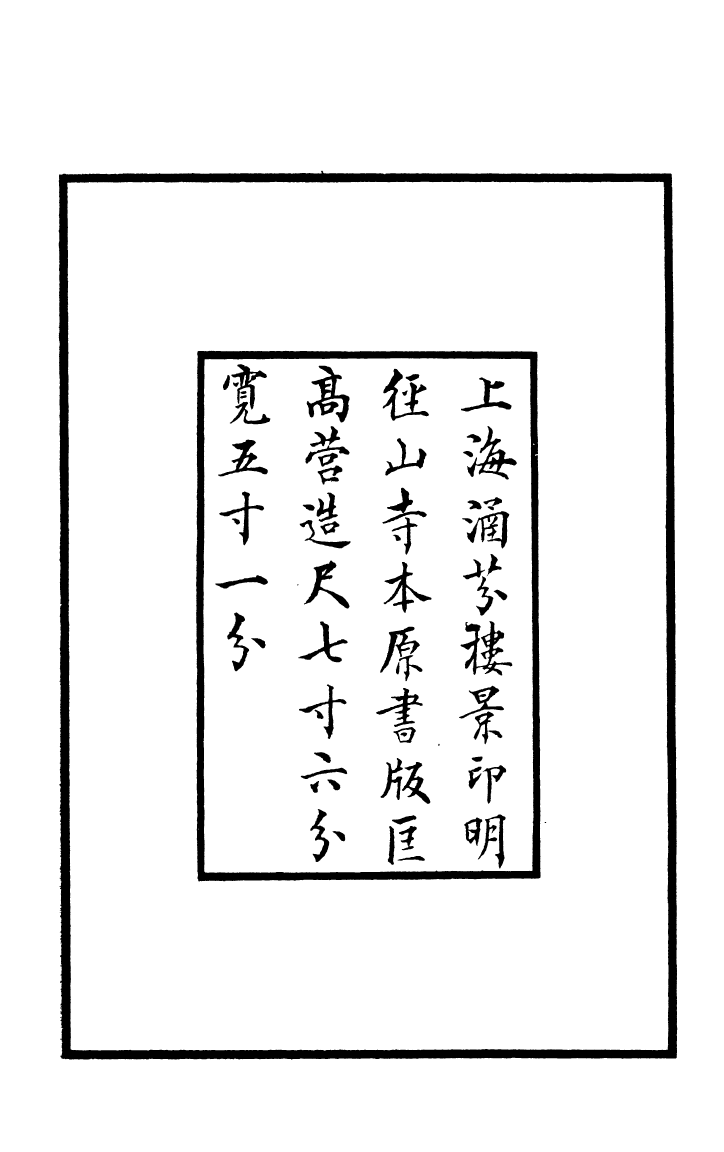 上海涵芬樓景印明
徑山寺本原書版匡
高營造尺七寸六分
寬五寸一分